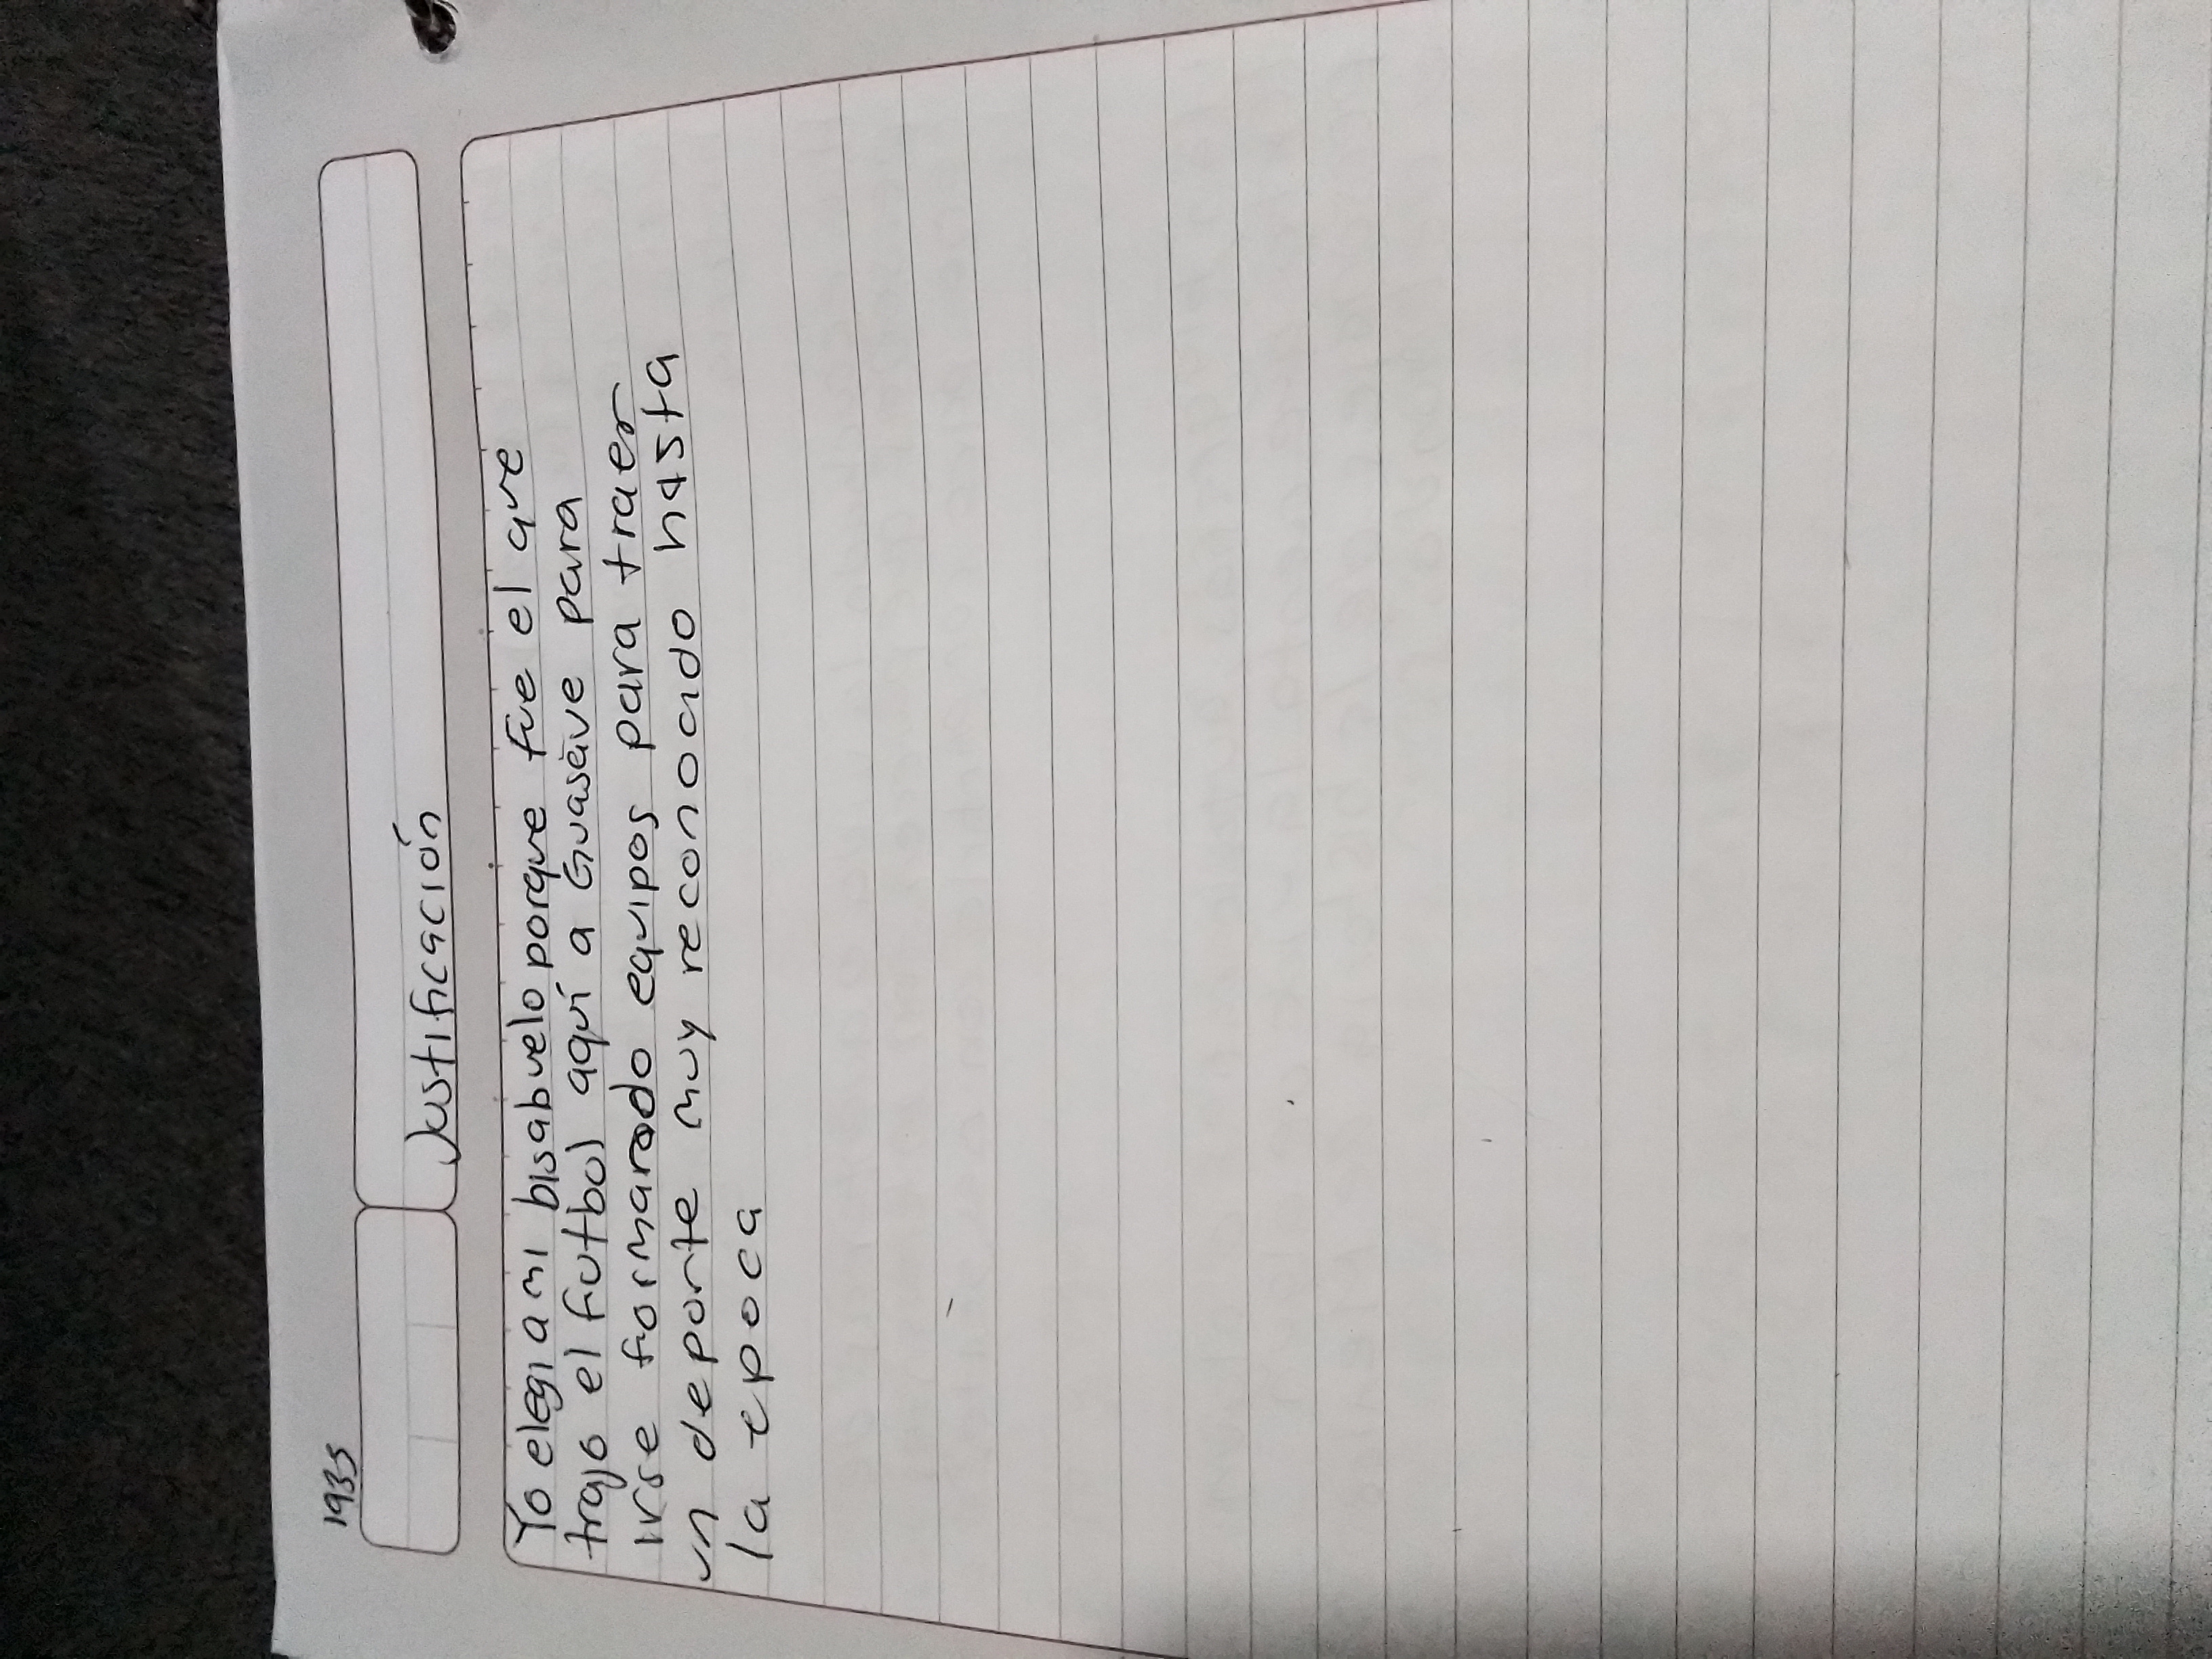 1935
Justificación
Yo elegi a mi bisabuelo porque fue el que
trajo el futbol aquí a Guasave para
irse formarodo equipos para traer
un deporte muy reconocido hasta
la epoca